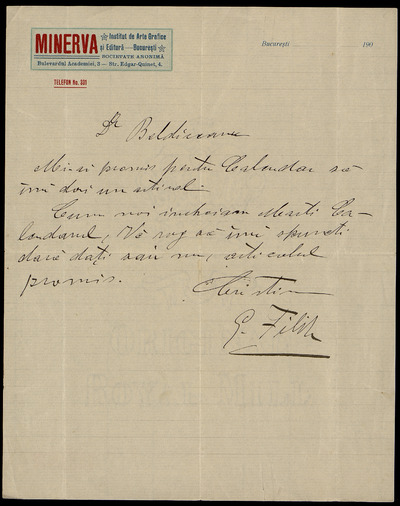 MINERVA
Institut de Arte Grafice
și Editură — București
SOCIETATE ANONIMĂ
Bulevardul Academiei, 3 — Str. Edgar-Quinet, 4.
TELEFON No. 301
București 190
Dr
Mi-ai promis pentru Calendar să
îmi dai un articol.
Cum noi încheiem Ca-
lendarul, Vă rog să îmi spuneți
dacă dați sau nu, articolul
promis.